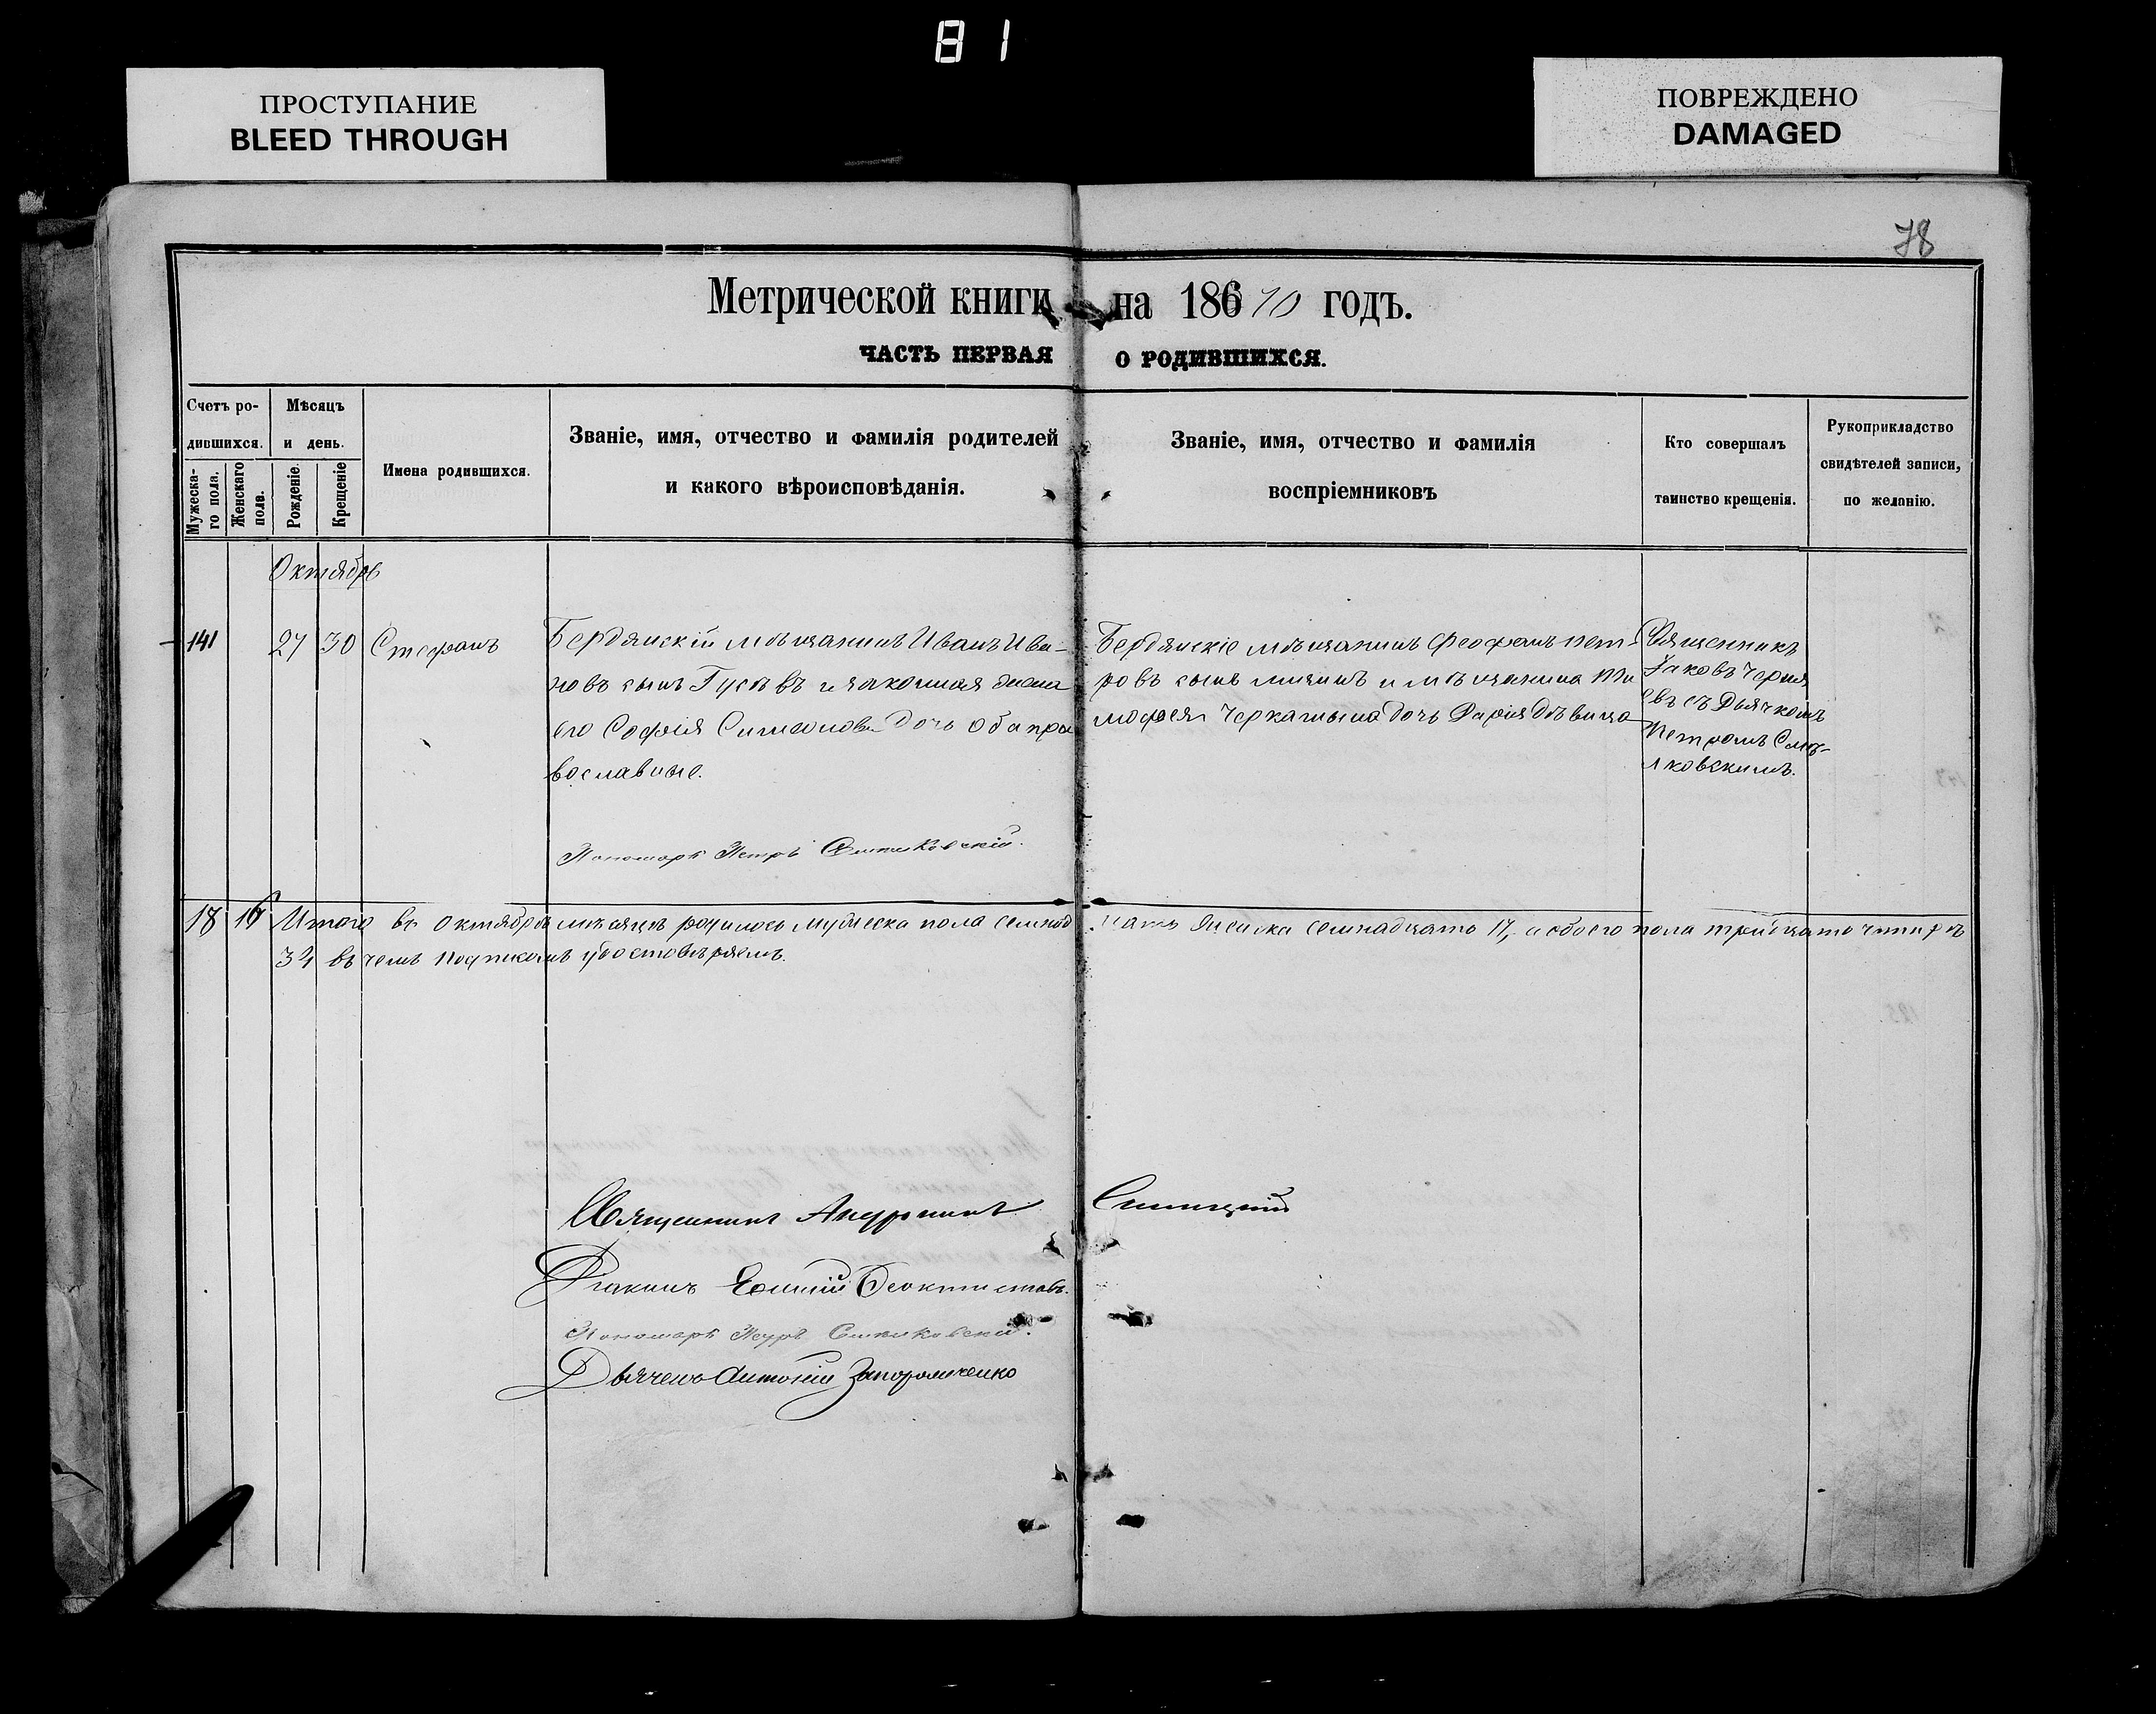 81
ПРОСТУПАНИЕ
BLEED THROUGH
ПОВРЕЖДЕНО
DAMAGED
78
Метрической книги на 18670 годъ.
ЧАСТЬ ПЕРВАЯ О РОДИВШИХСЯ.
Счетъ родившихся.
Мужескаго пола.
Женскаго пола.
Мѣсяцъ и день.
Рожденіе.
Крещеніе
Имена родившихся.
Званіе, имя, отчество и фамилія родителей
и какого вѣроисповѣданія.
Званіе, имя, отчество и фамилія
воспріемниковъ
Кто совершалъ
таинство крещенія.
Рукоприкладство
свидѣтелей записи,
по желанію.
Октябрь
141 27 30 Стефанъ
Бердянскій мѣщанинъ Иванъ Ива-
новъ сынъ Гусевъ и законная жена
его Софія Симеонова дочь оба пра
вославные.
Бердянскіе мѣщанинъ Феофанъ Пет-
ровъ сынъ и мѣщанина Ти
мофея дочь Дарія дѣвица
Священникъ
Іаковъ Черня
евъ съ Дьячкомъ
Петромъ
Пономарь Петръ
18 16 Итого въ Октябрѣ мѣсяцѣ родилось мужеска пола семнад цать женска семнадцать 17, а обоего пола тридцать четыре
34 въ чемъ подписомъ удостовѣряемъ.
Священникъ Андроникъ
Діаконъ Феоктистовъ.
Пономарь Петръ
Дьячекъ Антоній Запорожченко